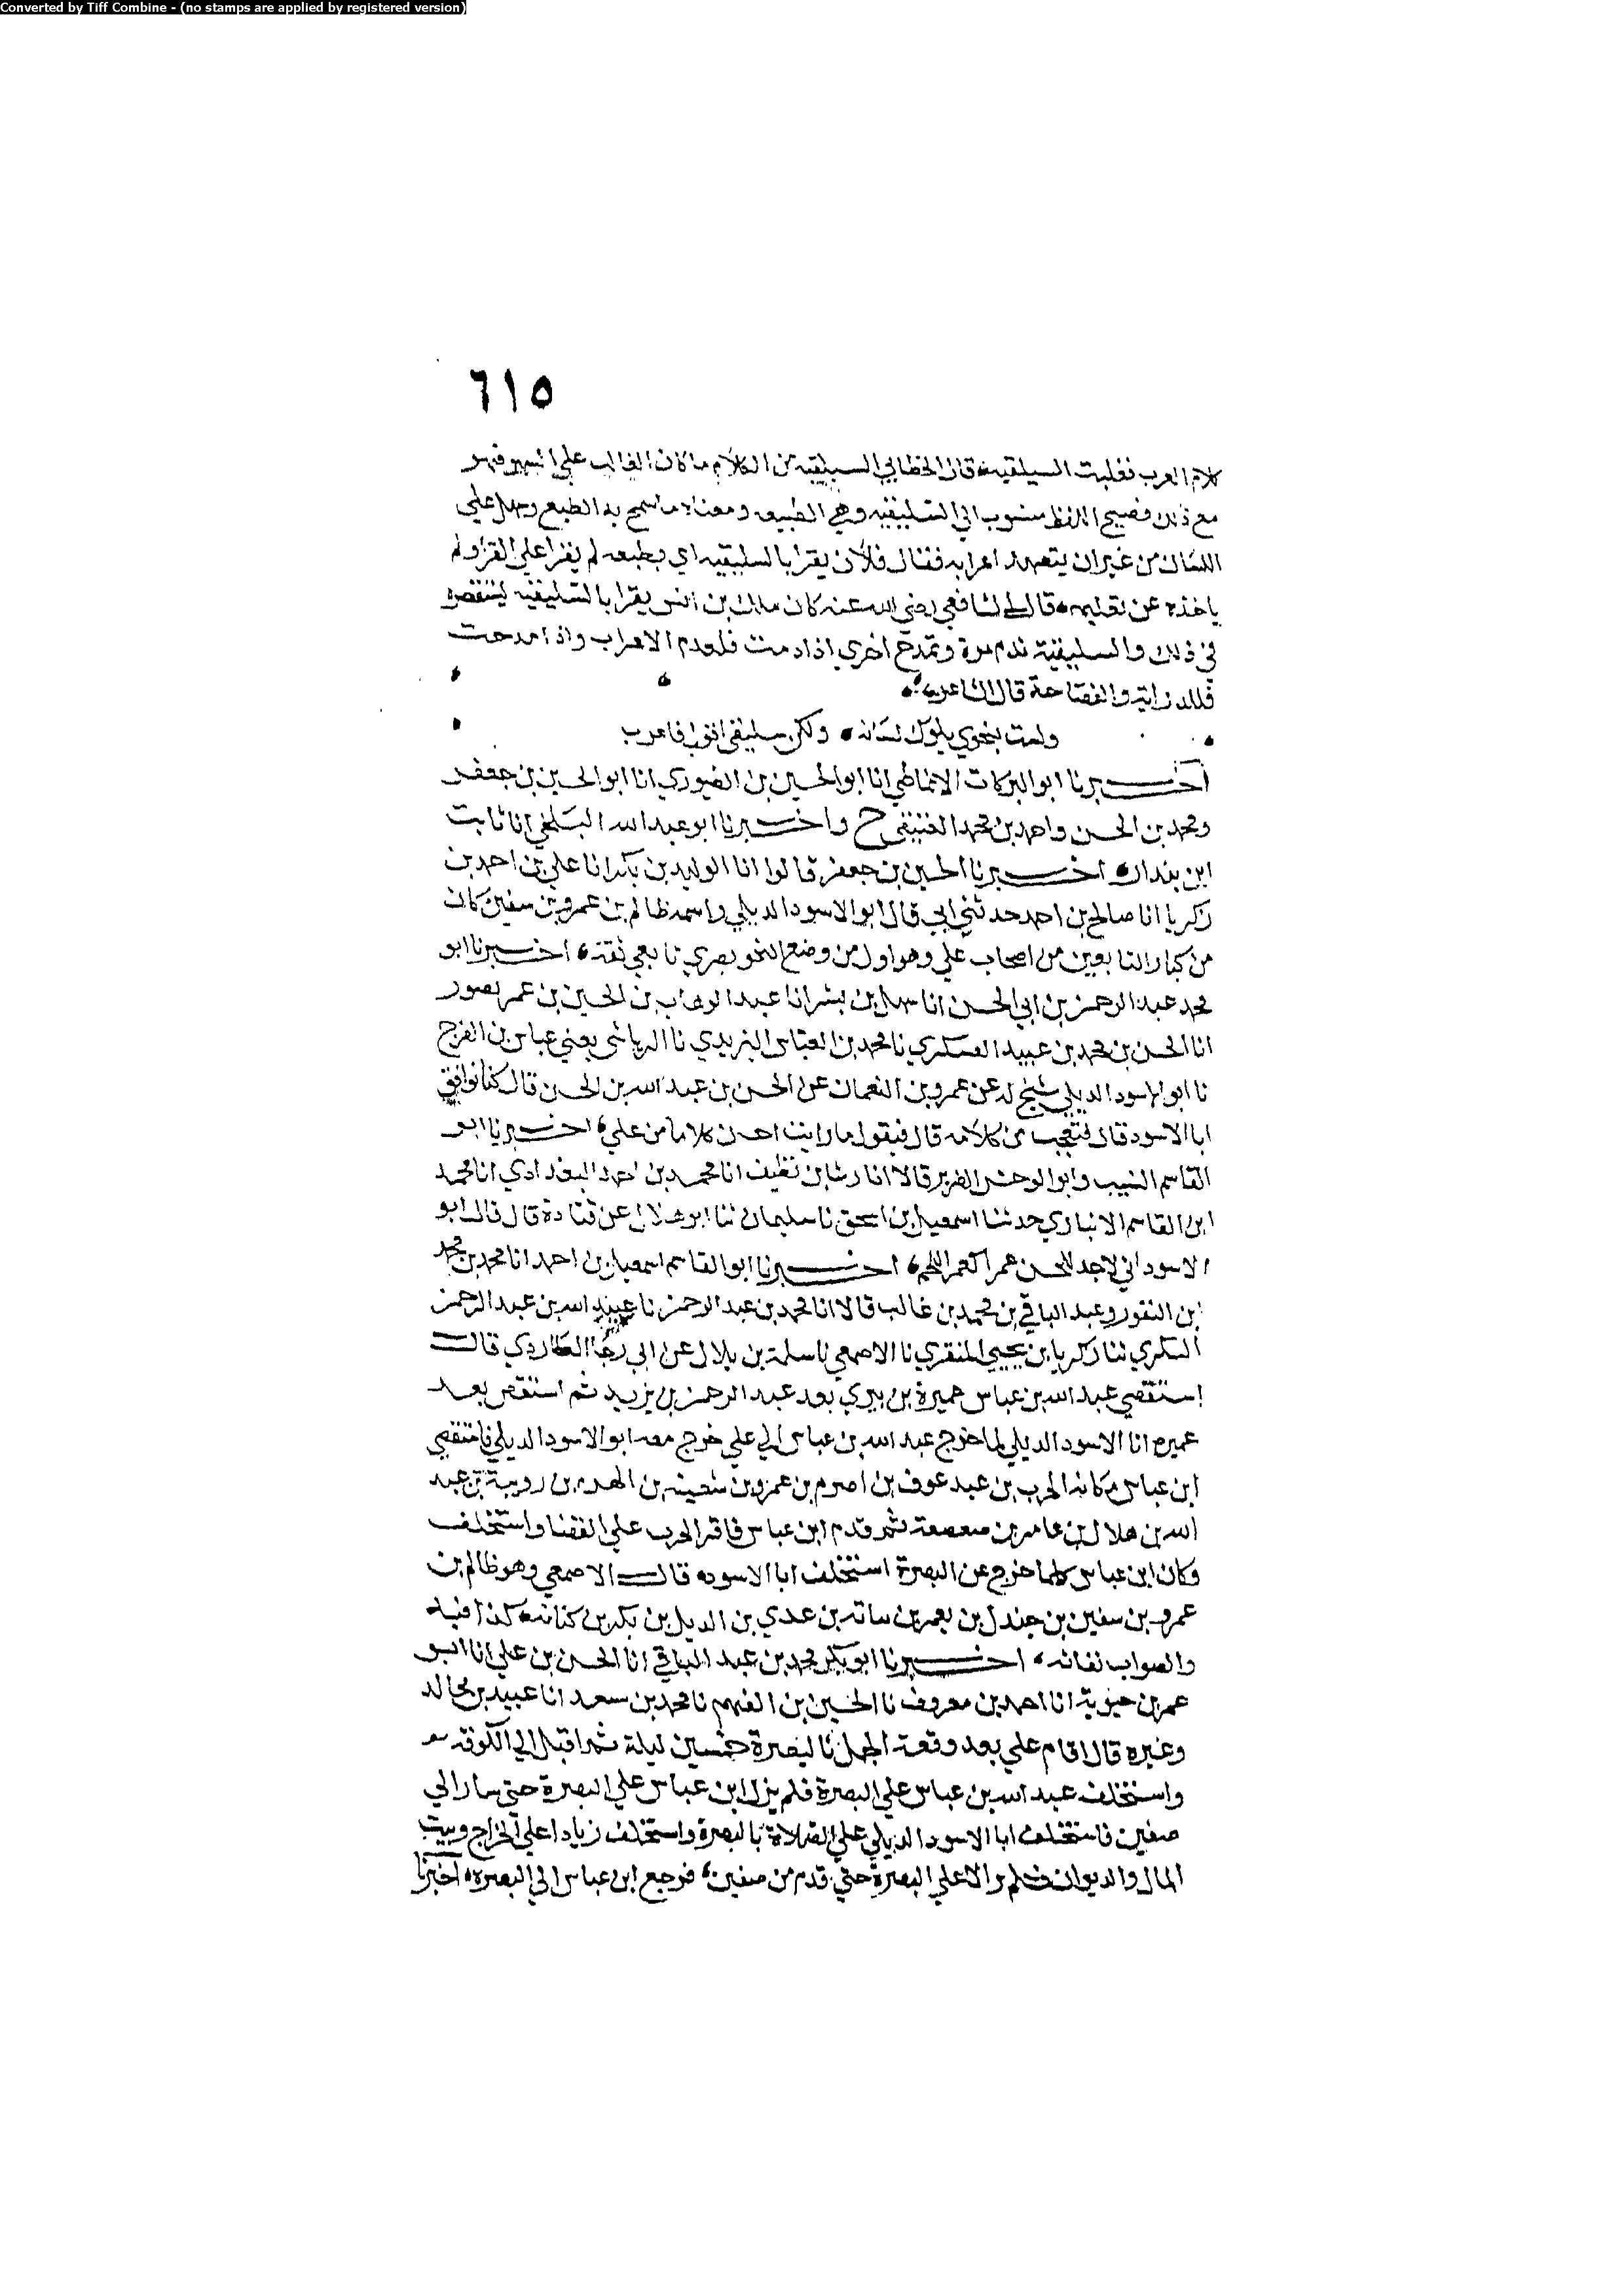 Converted by Tiff Combine - (no stamps are applied by registered version)
٦١٥
كلام العرب فغلبت السيلقيه قال الخطابي السيليقيه من الكلام ما كان الغالب عليه فهو
مع ذلك فصيح اللفظ منسوب الي السليقيه وهي الطبيعه ومعناه ما سمح به الطبع وسهل علي
اللسان من غير ان يتعهد اعرابه فقال فلان يقرا بالسليقيه اي بطبعه لم يقرا علي القرا ولم
ياخذه عن تعليم قال لي الشافعي رضي الله عنه كان مالك بن انس يقرا بالسليقيه يستقصره
في ذلك والسليقية تذم مرة وتمدح اخري اذا ذمت فلعدم الاعراب واذا مدحت
فللدراية والفصاحة قال الشاعر
ولست بنحوي يلوك لسانه ولكن سليقي اقول فاعرب
اخبرنا ابو البركات الانماطي انا ابو الحسين بن الصوري انا ابو الحسين بن جعفر
ومحمد بن الحسن واحمد بن محمد العتيقي ح واخبرنا ابو عبد الله البلخي انا ثابت
ابن بندار اخبرنا الحسين بن جعفر قالوا انا الوليد بن بكر انا علي بن احمد بن
زكريا انا صالح بن احمد حدثني ابي قال ابو الاسود الديلي واسمه ظالم بن عمرو بن سفين كان
من كبار التابعين من اصحاب علي وهو اول من وضع النحو بصري تابعي ثقة اخبرنا ابو
محمد عبد الرحمن بن ابي الحسن انا سهل بن بشر انا عبد الوهاب بن الحسين بن عمر بصور
انا الحسن بن محمد بن عبيد العسكري نا محمد بن العباس اليزيدي نا الرياشي يعني عباس بن الفرج
نا ابو الاسود الديلي شيخ له عن عمرو بن النعمان عن الحسن بن عبد الله بن الحسن قال كنا نوافق
ابا الاسود قال فتعجب من كلامه قال فيقول ما رايت احسن كلاما من علي اخبرنا ابو
القاسم النسيب وابو الوحش الضرير قالا انا رشا بن نظيف انا محمد بن احمد البغدادي انا محمد
ابن القاسم الانباري حدثنا اسمعيل بن اسحق نا سليمان ثنا ابو هلال عن قتادة قال قال ابو
الاسود اني لاجد للحن غمرا كغمر اللحم اخبرنا ابو القاسم اسمعيل بن احمد انا محمد بن محمد
ابن النقور وعبد الباقي بن محمد بن غالب قالا انا محمد بن عبد الرحمن نا عبيد الله بن عبد الرحمن
السكري ثنا زكريا بن يحيي المنقري نا الاصمعي نا سلمة بن بلال عن ابي رجا العطاردي قال
استقضي عبد الله بن عباس عميرة بن يبري بعد عبد الرحمن بن يزيد ثم استقضى بعد
عميره انا الاسود الديلي لما خرج عبد الله بن عباس الي علي خرج معه ابو الاسود الديلي فاستقضي
ابن عباس مكانه الحرب بن عبد عوف بن اصرم بن عمرو بن شعيثه بن الهدم بن رويبة بن عبد
الله بن هلال بن عامر بن صعصعة ثم قدم ابن عباس فاقر الحرب علي القضا واستخلف
وكان ابن عباس كلما خرج عن البصرة استخلف ابا الاسود قال الاصمعي وهو ظالم بن
عمرو بن سفين بن جندل بن يعمر بن ساته بن عدي بن الديل بن بكر بن كنانه كذا فيه
والصواب نفاثه اخبرنا ابو بكر محمد بن عبد الباقي انا الحسن بن علي انا ابو
عمر بن حيوية انا احمد بن معروف نا الحسين بن الفهم نا محمد بن سعد انا عبيد بن مجالد
وغيره قال اقام علي بعد وقعة الجمل بالبصرة خمسين ليلة ثم اقبل الي الكوفة
واستخلف عبد الله بن عباس علي البصرة فلم يزل ابن عباس علي البصرة حتى سار الي
صفين فاستخلف ابا الاسود الديلي علي الصلاة بالبصرة واستخلف زيادا علي الخراج وبيت
المال والديوان فلم يزالا علي البصرة حتي قدم من صفين فرجع ابن عباس الي البصرة اخبرنا